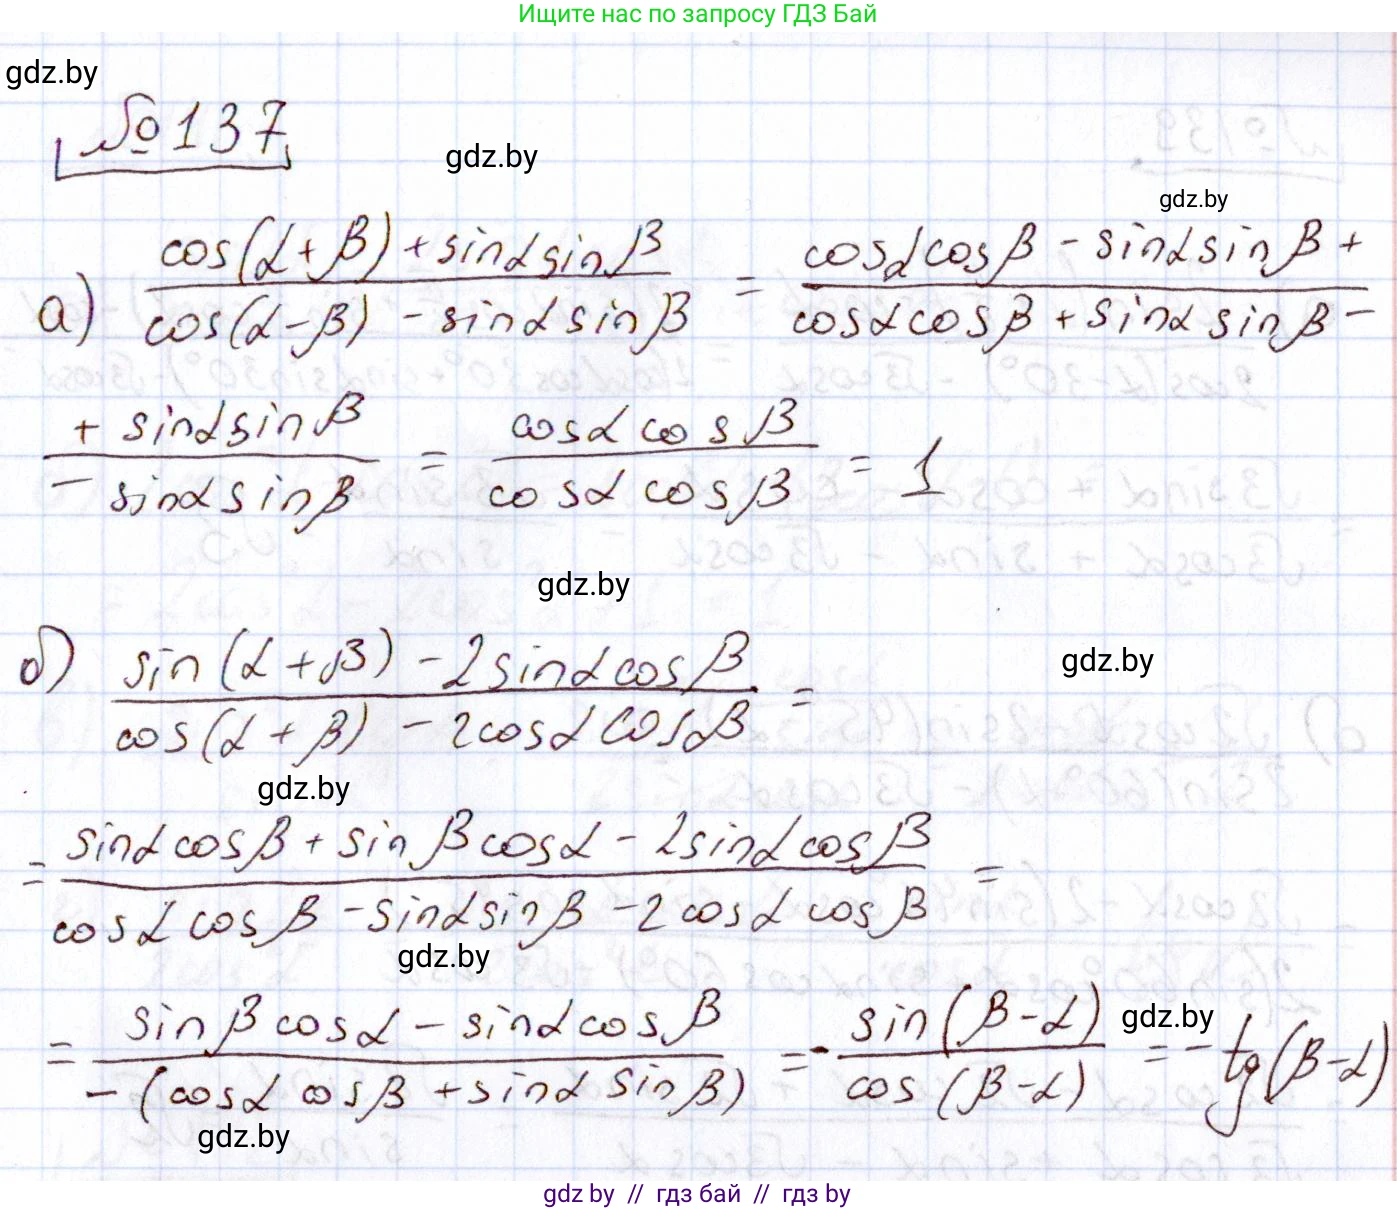 Ищите нас по запросу ГДЗ Бай
gdz.by
№137
gdz.by
gdz.by
а) (cos(α+β) + sinα sinβ) / (cos(α-β) - sinα sinβ) = (cosα cosβ - sinα sinβ +) / (cosα cosβ + sinα sinβ -)
(+ sinα sinβ) / (- sinα sinβ) = (cosα cosβ) / (cosα cosβ) = 1
gdz.by
б) (sin(α+β) - 2sinα cosβ) / (cos(α+β) - 2cosα cosβ) =
gdz.by
gdz.by
= (sinα cosβ + sinβ cosα - 2sinα cosβ) / (cosα cosβ - sinα sinβ - 2cosα cosβ) =
gdz.by
= (sinβ cosα - sinα cosβ) / (-(cosα cosβ + sinα sinβ)) = - sin(β-α) / cos(β-α) = - tg(β-α)
gdz.by
gdz.by
gdz by // гдз бай // гдз by